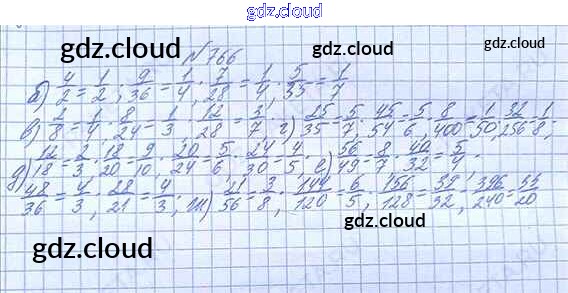 gdz.cloud
gdz.cloud gdz.cloud
№ 766
б) 4/2 = 1/2; 9/36 = 1/4; 7/28 = 1/4; 5/35 = 1/7
в) 2/8 = 1/4; 8/24 = 1/3; 12/28 = 3/7; г) 25/35 = 5/7; 45/54 = 5/6; 8/400 = 1/50; 32/256 = 1/8;
д) 12/18 = 2/3; 18/20 = 9/10; 20/24 = 5/6; 24/30 = 4/5; е) 56/49 = 8/7; 40/32 = 5/4;
48/36 = 4/3; 28/21 = 4/3; ж) 21/56 = 3/8; 144/120 = 6/5; 156/128 = 39/32; 396/240 = 33/20
gdz.cloud
gdz.cloud